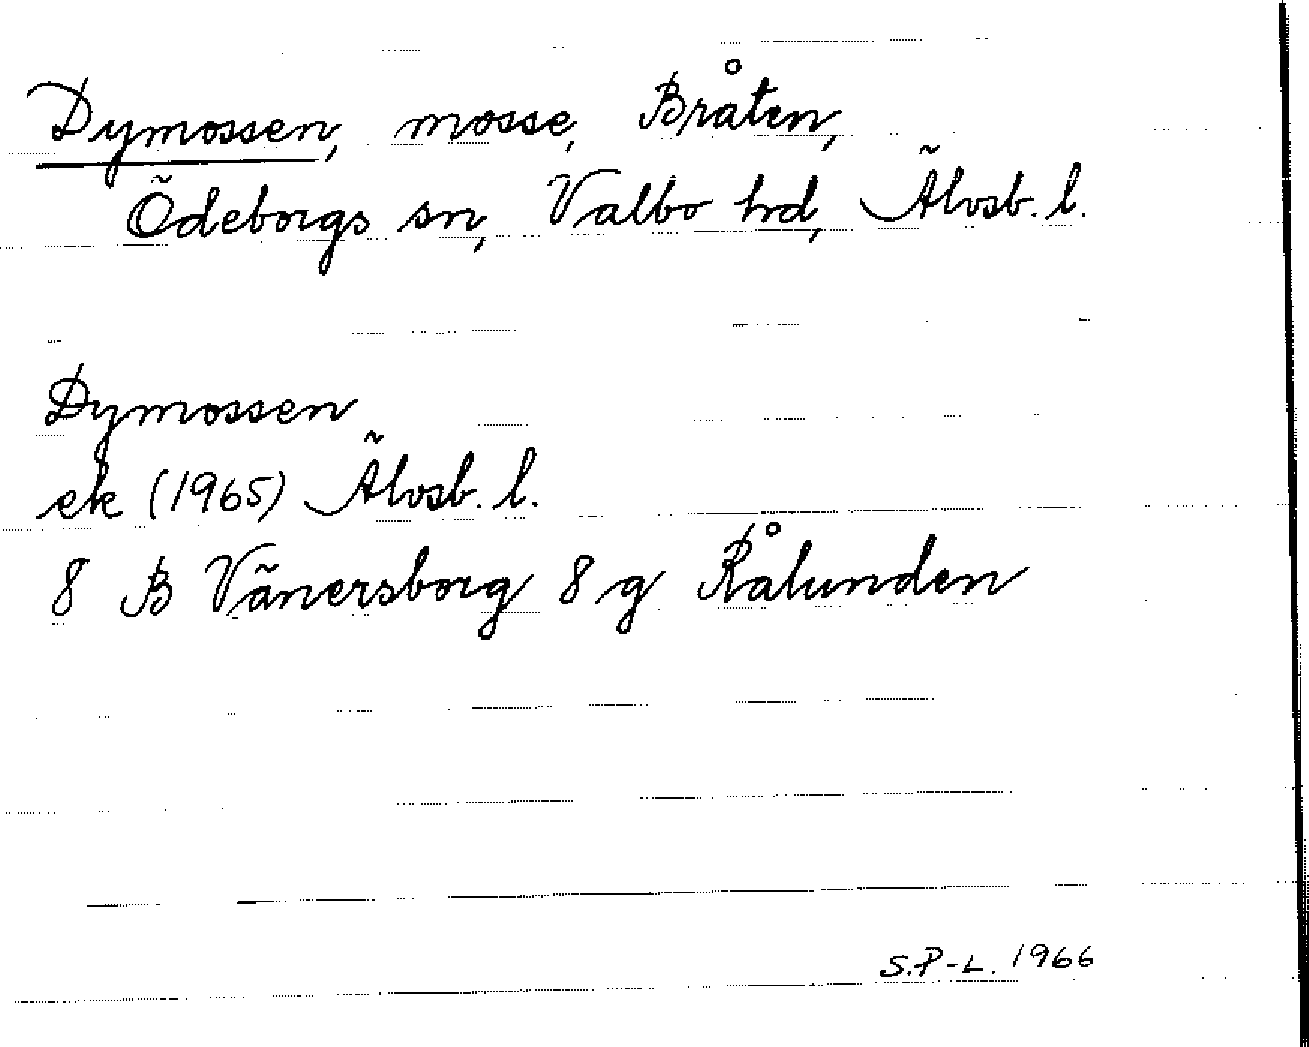 Dymossen, mosse, Bråten,
Ödeborgs sn, Valbo hd, Älvsb. l.
Dymossen
ek (1965) Älvsb. l.
8 B Vänersborg 8 g Rålunden
S.P-L. 1966